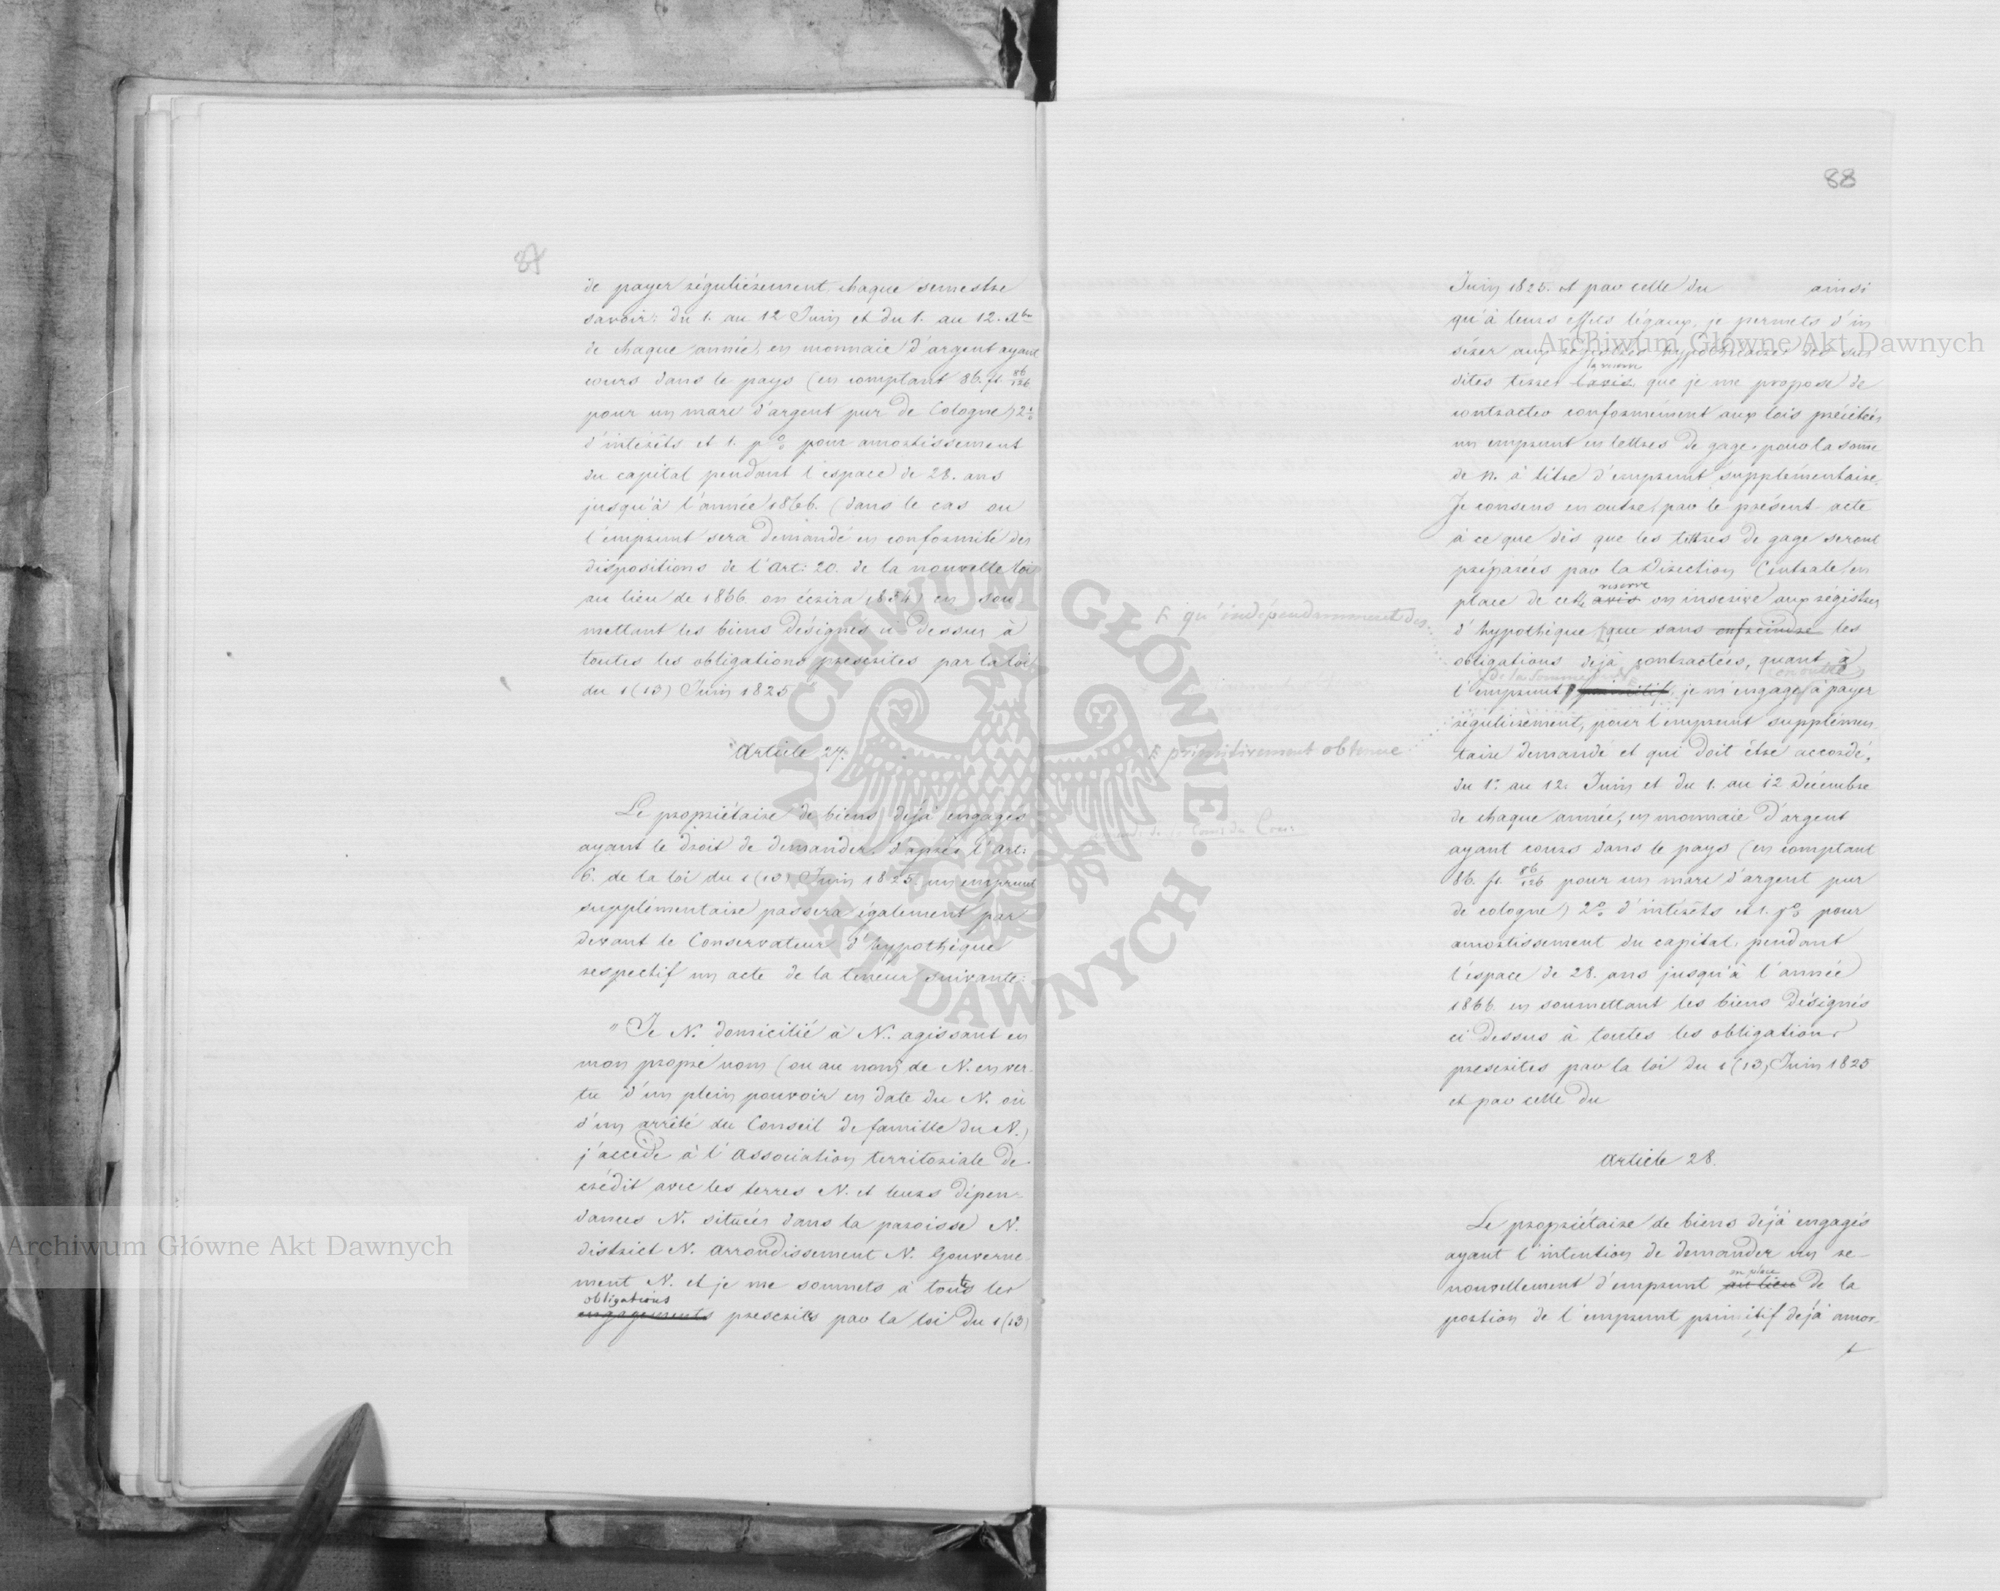 87
de payer régulièrement, chaque semestre
savoir: du 1. au 12 Juin et du 1. au 12. Xbre
de chaque année, en monnaie d'argent ayant
cours dans le pays (en comptant 86. fl. 86/126
pour un marc d'argent pur de Cologne) 2%
d'intérêts et 1. p% pour amortissement
du capital pendant l'espace de 28. ans
jusqu'à l'année 1866. (dans le cas ou
l'emprunt sera demandé en conformité des
dispositions de l'Art: 20. de la nouvelle loi
au lieu de 1866 on écrira 1854) en sou
mettant les biens désignés ci dessus à
toutes les obligations prescrites par la loi
du 1(13) Juin 1825
Article 27.
Le propriétaire de biens déjà engagés
ayant le droit de demander, d'après l'Art:
6. de la loi du 1(13) Juin 1825. un emprunt
supplémentaire passera également par
devant le Conservateur d'hypothèque
respectif un acte de la teneur suivante:
"Je N. domicilié à N. agissant en
mon propre nom (ou au nom de N. en ver-
tu d'un plein pouvoir en date du N. ou
d'un arrêté du Conseil de famille du N.)
j'accède à l'Association territoriale de
crédit avec les terres N. et leurs dépen-
dances N. situées dans la paroisse N.
district N. Arrondissement N. Gouverne-
ment N. et je me soumets à toutes les
obligations
engagements prescrites par la loi du 1(13)
88
Juin 1825. et par celle du ainsi
qu'à leurs effets légaux, je permets d'in
sérer aux régistres hypothécaires des sus
dites terres la réserve l'avis que je me propose de
contracter conformément aux lois précitées
un emprunt en lettres de gage pour la somme
de N. à titre d'emprunt supplémentaire.
Je consens en outre par le présent acte
à ce que dès que les lettres de gage seront
préparées par la Direction Centrale en
place de cette réserve avis on inscrive aux régistres
d'hypothèque que sans enfreindre les
F qu'indépendamment des
obligations déjà contractées, quant à
de la somme en outre
l'emprunt primitif, je m'engage à payer
régulièrement, pour l'emprunt supplémen-
F primitivement obtenue
taire demandé et qui doit être accordé,
du 1. au 12. Juin et du 1. au 12 Décembre
de chaque année, en monnaie d'argent
ayant cours dans le pays (en comptant
86. fl. 86/126 pour un marc d'argent pur
de cologne) 2% d'intérêts et 1. p% pour
amortissement du capital, pendant
l'espace de 28. ans jusqu'à l'année
1866 en soumettant les biens désignés
ci dessus à toutes les obligations
prescrites par la loi du 1(13) Juin 1825
et par celle du
Article 28.
Le propriétaire de biens déjà engagés
ayant l'intention de demander un re-
nouvellement d'emprunt en place au lieu de la
portion de l'emprunt primitif déjà amor-
Archiwum Główne Akt Dawnych
Archiwum Główne Akt Dawnych
ARCHIWUM GŁÓWNE AKT DAWNYCH